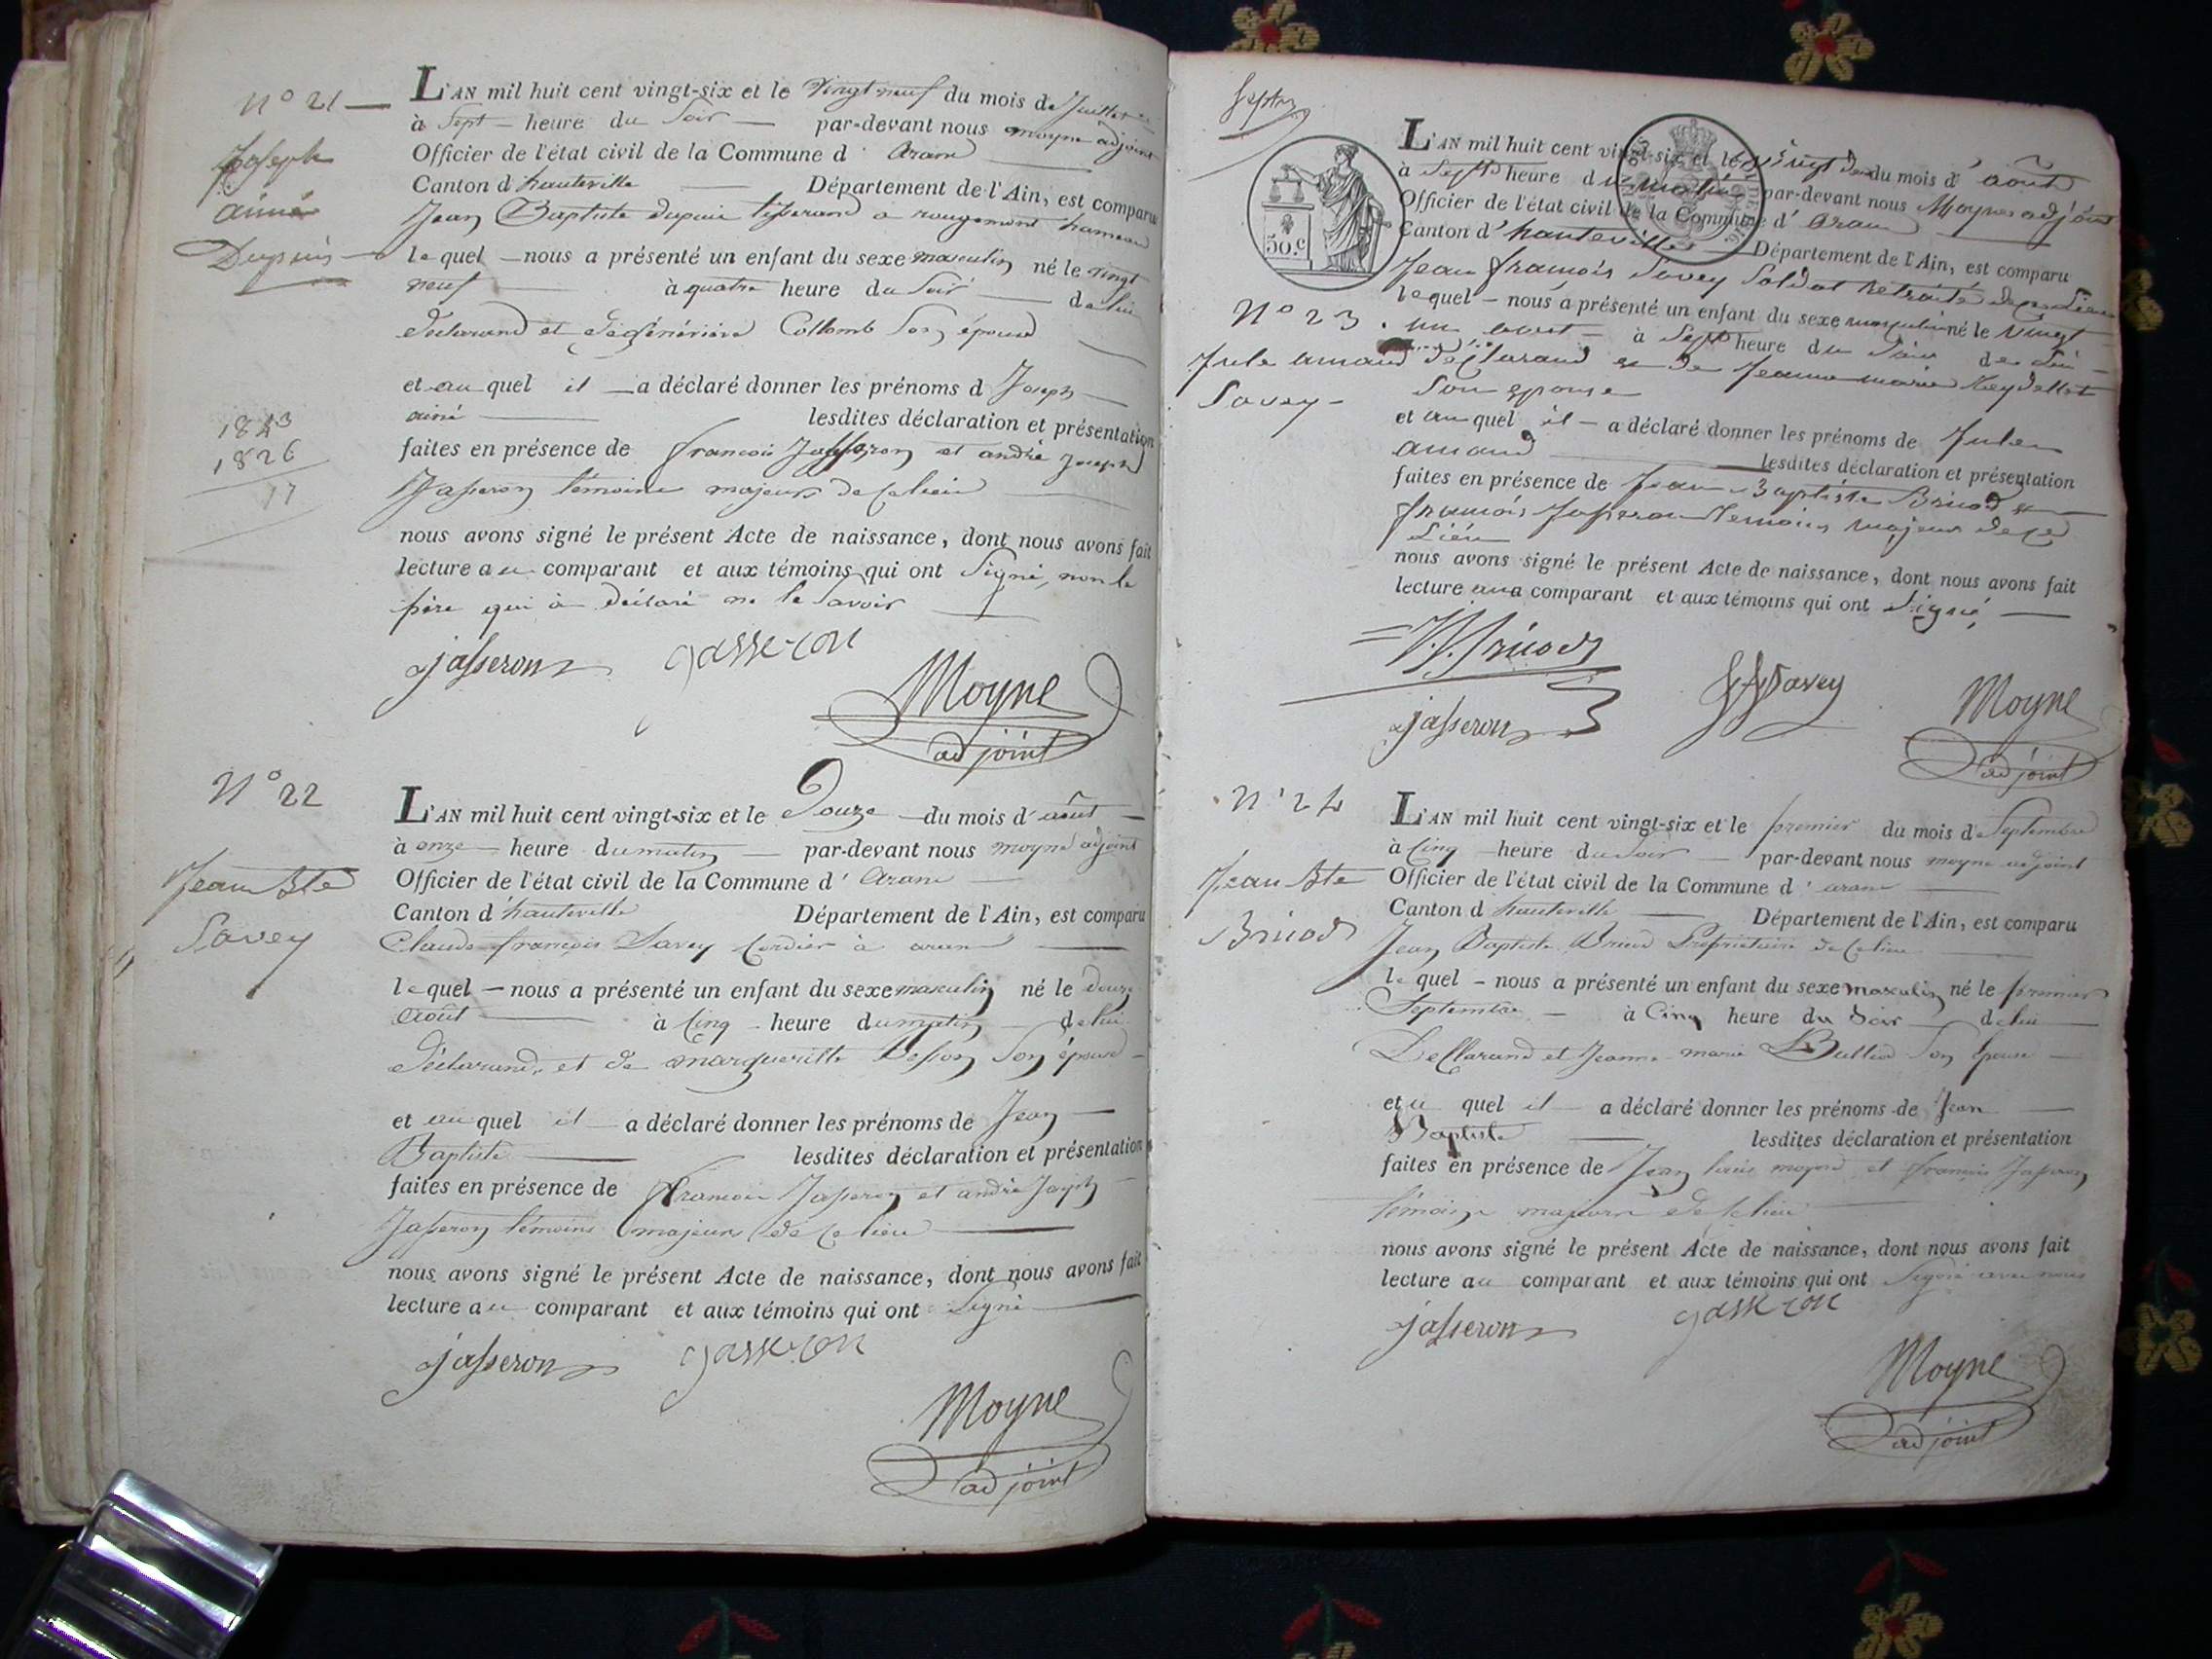 N° 21 —
Joseph
aimé
Dupuis
1843
1826
17
L'AN mil huit cent vingt-six et le vingt neuf du mois de Juillet
à Sept heure du Soir par-devant nous moyne adjoint
Officier de l'état civil de la Commune d' Aranc
Canton d'hauteville Département de l'Ain, est comparu
Jean Baptiste dupuis tisserand a rougemont hameau
lequel nous a présenté un enfant du sexe masculin né le vingt
neuf à quatre heure du Soir de lui
déclarand et de génériève Collomb Son épouse
et au quel il a déclaré donner les prénoms d Joseph
aimé lesdites déclaration et présentation
faites en présence de francois Jasseron et andré Joseph
Jasseron témoins majeurs de ce lieu
nous avons signé le présent Acte de naissance, dont nous avons fait
lecture au comparant et aux témoins qui ont Signé, non le
père qui à déclaré ne le Savoir
jasseron gasseron
Moyne
adjoint
N° 22
Jean Bte
Savey
L'AN mil huit cent vingt-six et le Douze du mois d'août
à onze heure du matin par-devant nous moyne adjoint
Officier de l'état civil de la Commune d' Aranc
Canton d'hauteville Département de l'Ain, est comparu
Claude françois Savey Cordier à aranc
lequel nous a présenté un enfant du sexe masculin né le douze
Août à Cinq heure du matin de lui
déclarand, et de margueritte Besson Son épouse
et au quel il a déclaré donner les prénoms de Jean
Baptiste lesdites déclaration et présentation
faites en présence de francois Jasseron et andré Joseph
Jasseron témoins majeurs de ce lieu
nous avons signé le présent Acte de naissance, dont nous avons fait
lecture au comparant et aux témoins qui ont Signé
jasseron gasseron
Moyne
adjoint
50.c
N° 23.
Jule amand
Savey
L'AN mil huit cent vingt-six et le vingt deux du mois d' août
à Sept heure du matin par-devant nous Moyne adjoint
Officier de l'état civil de la Commune d' Aranc
Canton d' hauteville Département de l'Ain, est comparu
Jean françois Savey Soldat Retraité de ce Lieu
lequel nous a présenté un enfant du sexe masculin né le Vingt
un aout à Sept heure du Soir de Lui
déclarand et de Jeanne marie Reydellet
Son epouse
et au quel il a déclaré donner les prénoms de Jule
amand lesdites déclaration et présentation
faites en présence de Jean Baptiste Briod et
françois Jasseron Temoins majeur de ce
Lieu
nous avons signé le présent Acte de naissance, dont nous avons fait
lecture aux comparant et aux témoins qui ont Signé,
Savey
jasseron
Moyne
adjoint
N° 24
Jean Bte
Briod
L'AN mil huit cent vingt-six et le premier du mois d Septembre
à Cinq heure du Soir par-devant nous moyne adjoint
Officier de l'état civil de la Commune d' aranc
Canton d hauteville Département de l'Ain, est comparu
Jean Baptiste Briod Propriétaire de ce lieu
lequel nous a présenté un enfant du sexe masculin né le premier
Septembre à Cinq heure du Soir de lui
Declarand et Jeanne marie Son épouse
et a quel il a déclaré donner les prénoms de Jean
Baptiste lesdites déclaration et présentation
faites en présence de Jean louis et françois Jasseron
témoins majeurs de ce lieu
nous avons signé le présent Acte de naissance, dont nous avons fait
lecture au comparant et aux témoins qui ont Signé avec nous
jasseron gasseron
Moyne
adjoint